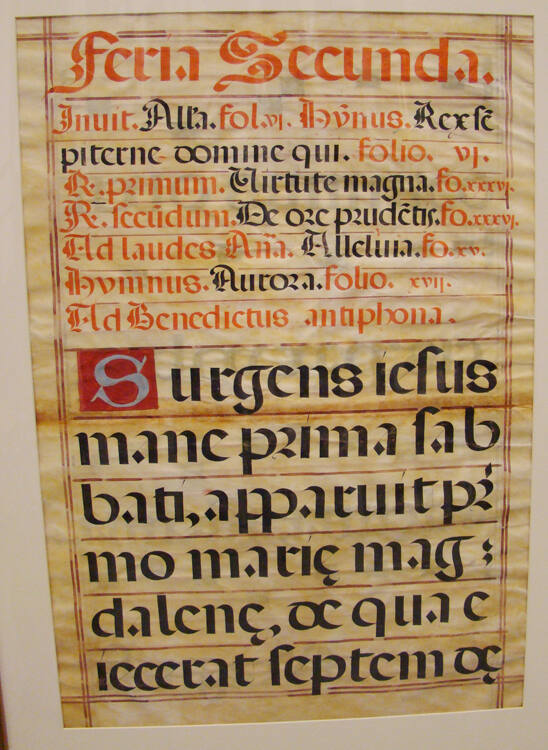 Feria Secunda.
Inuit. All'a. fol. vj. Hỹnus. Rex sẽ
piterne domine qui. folio. vj.
R̃. primum. Uirtute magna. fo. xxxvj.
R̃. secũdum. De ore prudẽtis. fo. xxxvj.
Ad laudes Añã. Alleluia. fo. xv.
Hymnus. Aurora. folio. xvij.
Ad Benedictus antiphona.
Surgens iesus
mane prima sab
bati, apparuit pri
mo marię mag⹀
dalenę, de qua e
iecerat septem dę